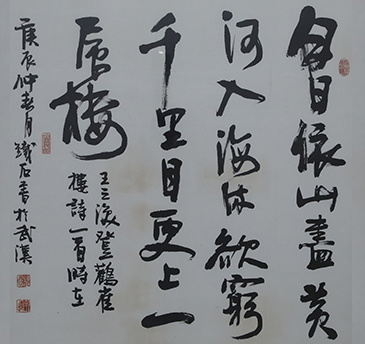 白日依山盡黄
河入海流欲窮
千里目更上一
层樓
王之渙登鸛雀
樓詩一首時在
庚辰仲春月鐵石書於武漢